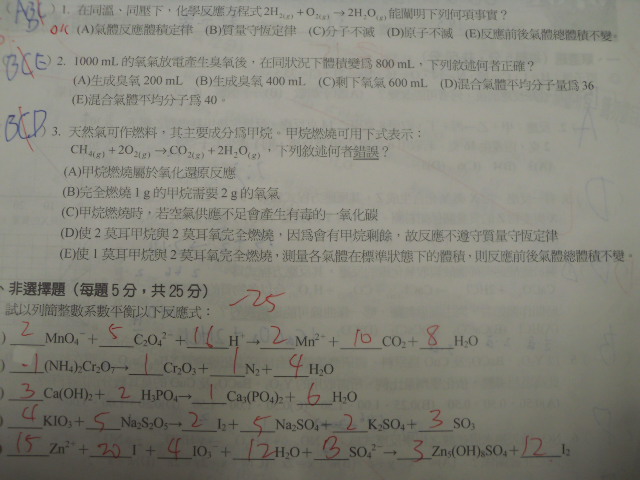 ABC ) 1. 在同溫、同壓下，化學反應方程式 2H₂₍g₎ + O₂₍g₎ → 2H₂O₍g₎ 能闡明下列何項事實？
(A)氣體反應體積定律 (B)質量守恆定律 (C)分子不滅 (D)原子不滅 (E)反應前後氣體總體積不變。
BCE ) 2. 1000 mL 的氧氣放電產生臭氧後，在同狀況下體積變為 800 mL，下列敘述何者正確？
(A)生成臭氧 200 mL (B)生成臭氧 400 mL (C)剩下氧氣 600 mL (D)混合氣體平均分子量為 36
(E)混合氣體平均分子為 40。
BCD 3. 天然氣可作燃料，其主要成分為甲烷。甲烷燃燒可用下式表示：
CH₄₍g₎ + 2O₂₍g₎ → CO₂₍g₎ + 2H₂O₍g₎，下列敘述何者錯誤？
(A)甲烷燃燒屬於氧化還原反應
(B)完全燃燒 1 g 的甲烷需要 2 g 的氧氣
(C)甲烷燃燒時，若空氣供應不足會產生有毒的一氧化碳
(D)使 2 莫耳甲烷與 2 莫耳氧完全燃燒，因為會有甲烷剩餘，故反應不遵守質量守恆定律
(E)使 1 莫耳甲烷與 2 莫耳氧完全燃燒，測量各氣體在標準狀態下的體積，則反應前後氣體總體積不變。
、非選擇題（每題 5 分，共 25 分） -25
試以列簡整數係數平衡以下反應式：
) 2 MnO₄⁻ + 5 C₂O₄²⁻ + 16 H⁺ → 2 Mn²⁺ + 10 CO₂ + 8 H₂O
) 1 (NH₄)₂Cr₂O₇ → 1 Cr₂O₃ + 1 N₂ + 4 H₂O
) 3 Ca(OH)₂ + 2 H₃PO₄ → 1 Ca₃(PO₄)₂ + 6 H₂O
) 4 KIO₃ + 5 Na₂S₂O₅ → 2 I₂ + 5 Na₂SO₄ + 2 K₂SO₄ + 3 SO₃
) 15 Zn²⁺ + 20 I⁻ + 4 IO₃⁻ + 12 H₂O + 3 SO₄²⁻ → 3 Zn₅(OH)₈SO₄ + 12 I₂